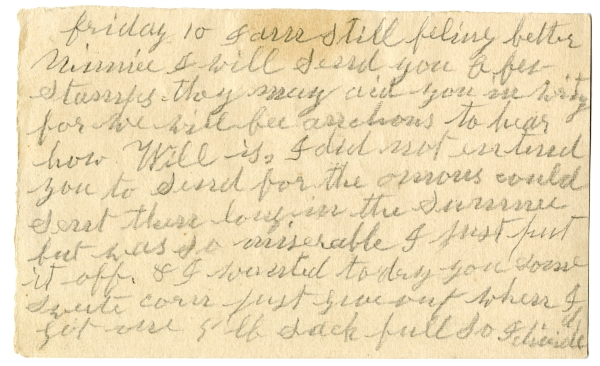 friday 10 I am still feling better
Minnie I will send you a few
stamps they may aid you in writy
for we will bee anchons to hear
how Will is, I did not entend
you to send for the onions could
sent them long in the summer
but was so miserable I just put
it off. & I wanted to dry you some
sweete corn just give out when I
got one 5 lb sack full so I divide